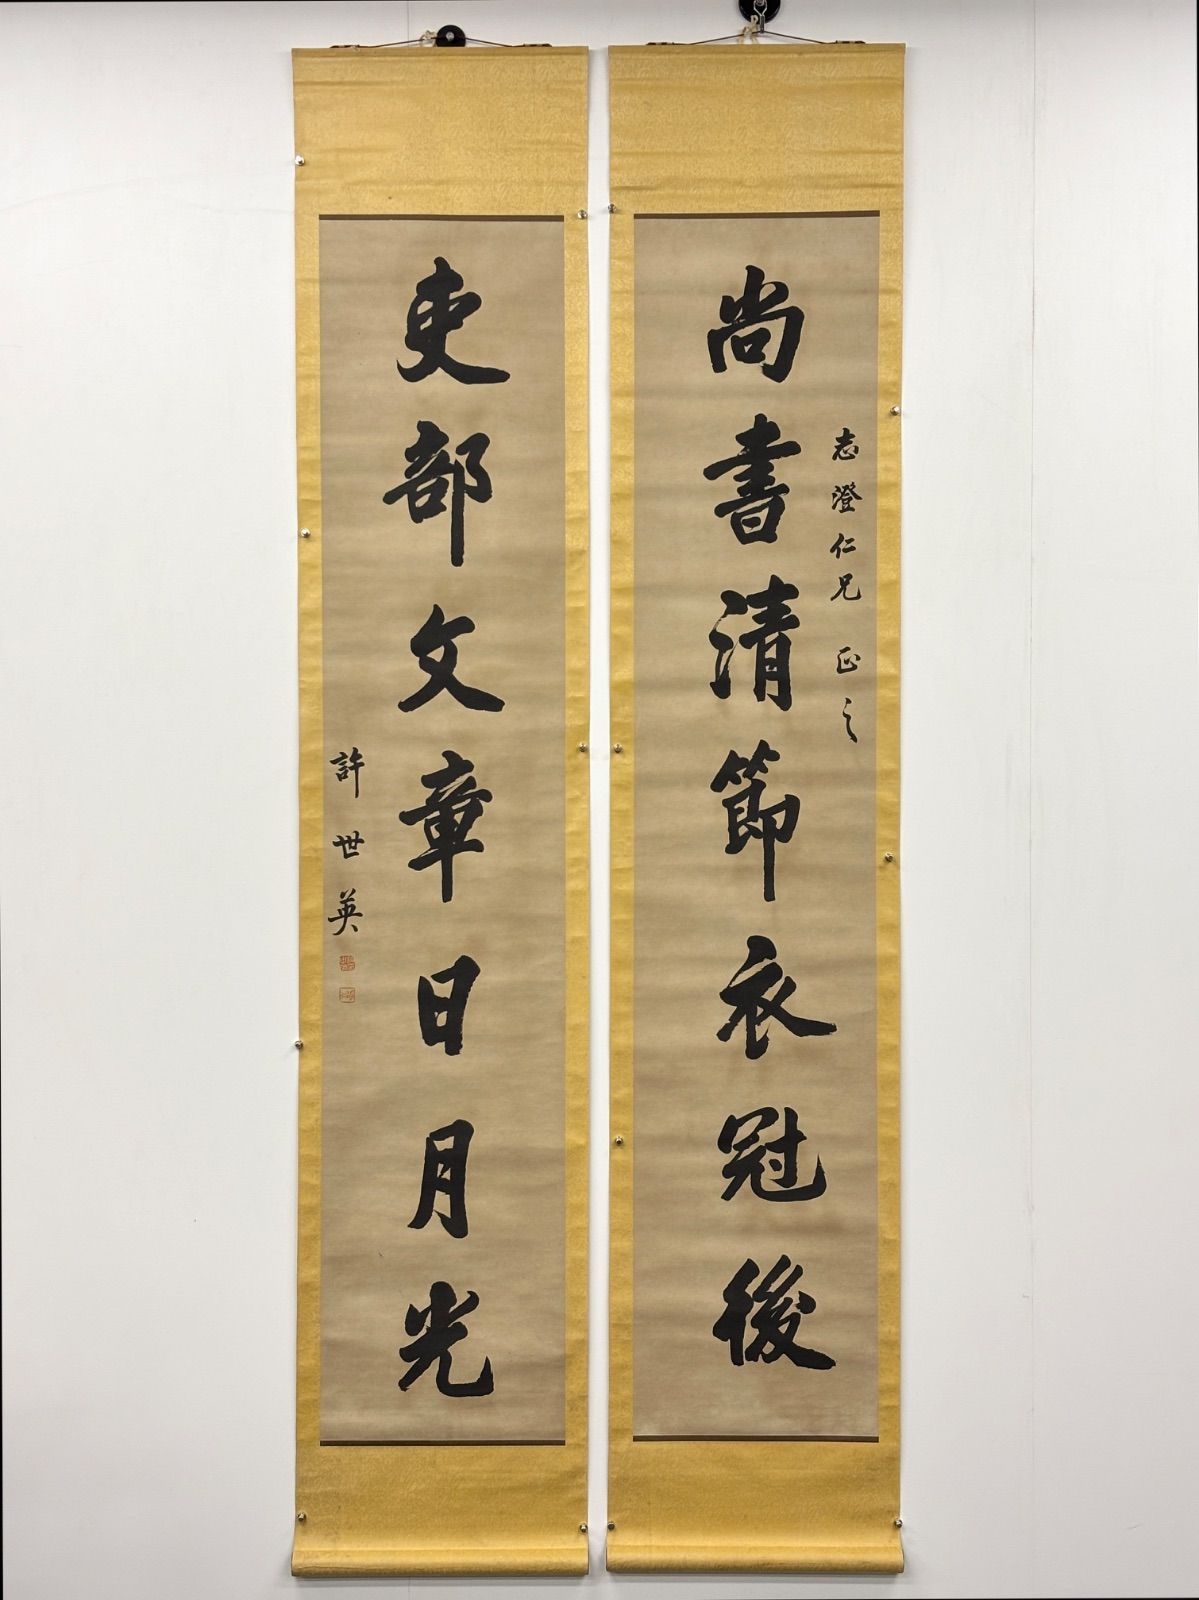 志澄仁兄 正之
尚書清節衣冠後
吏部文章日月光
許世英